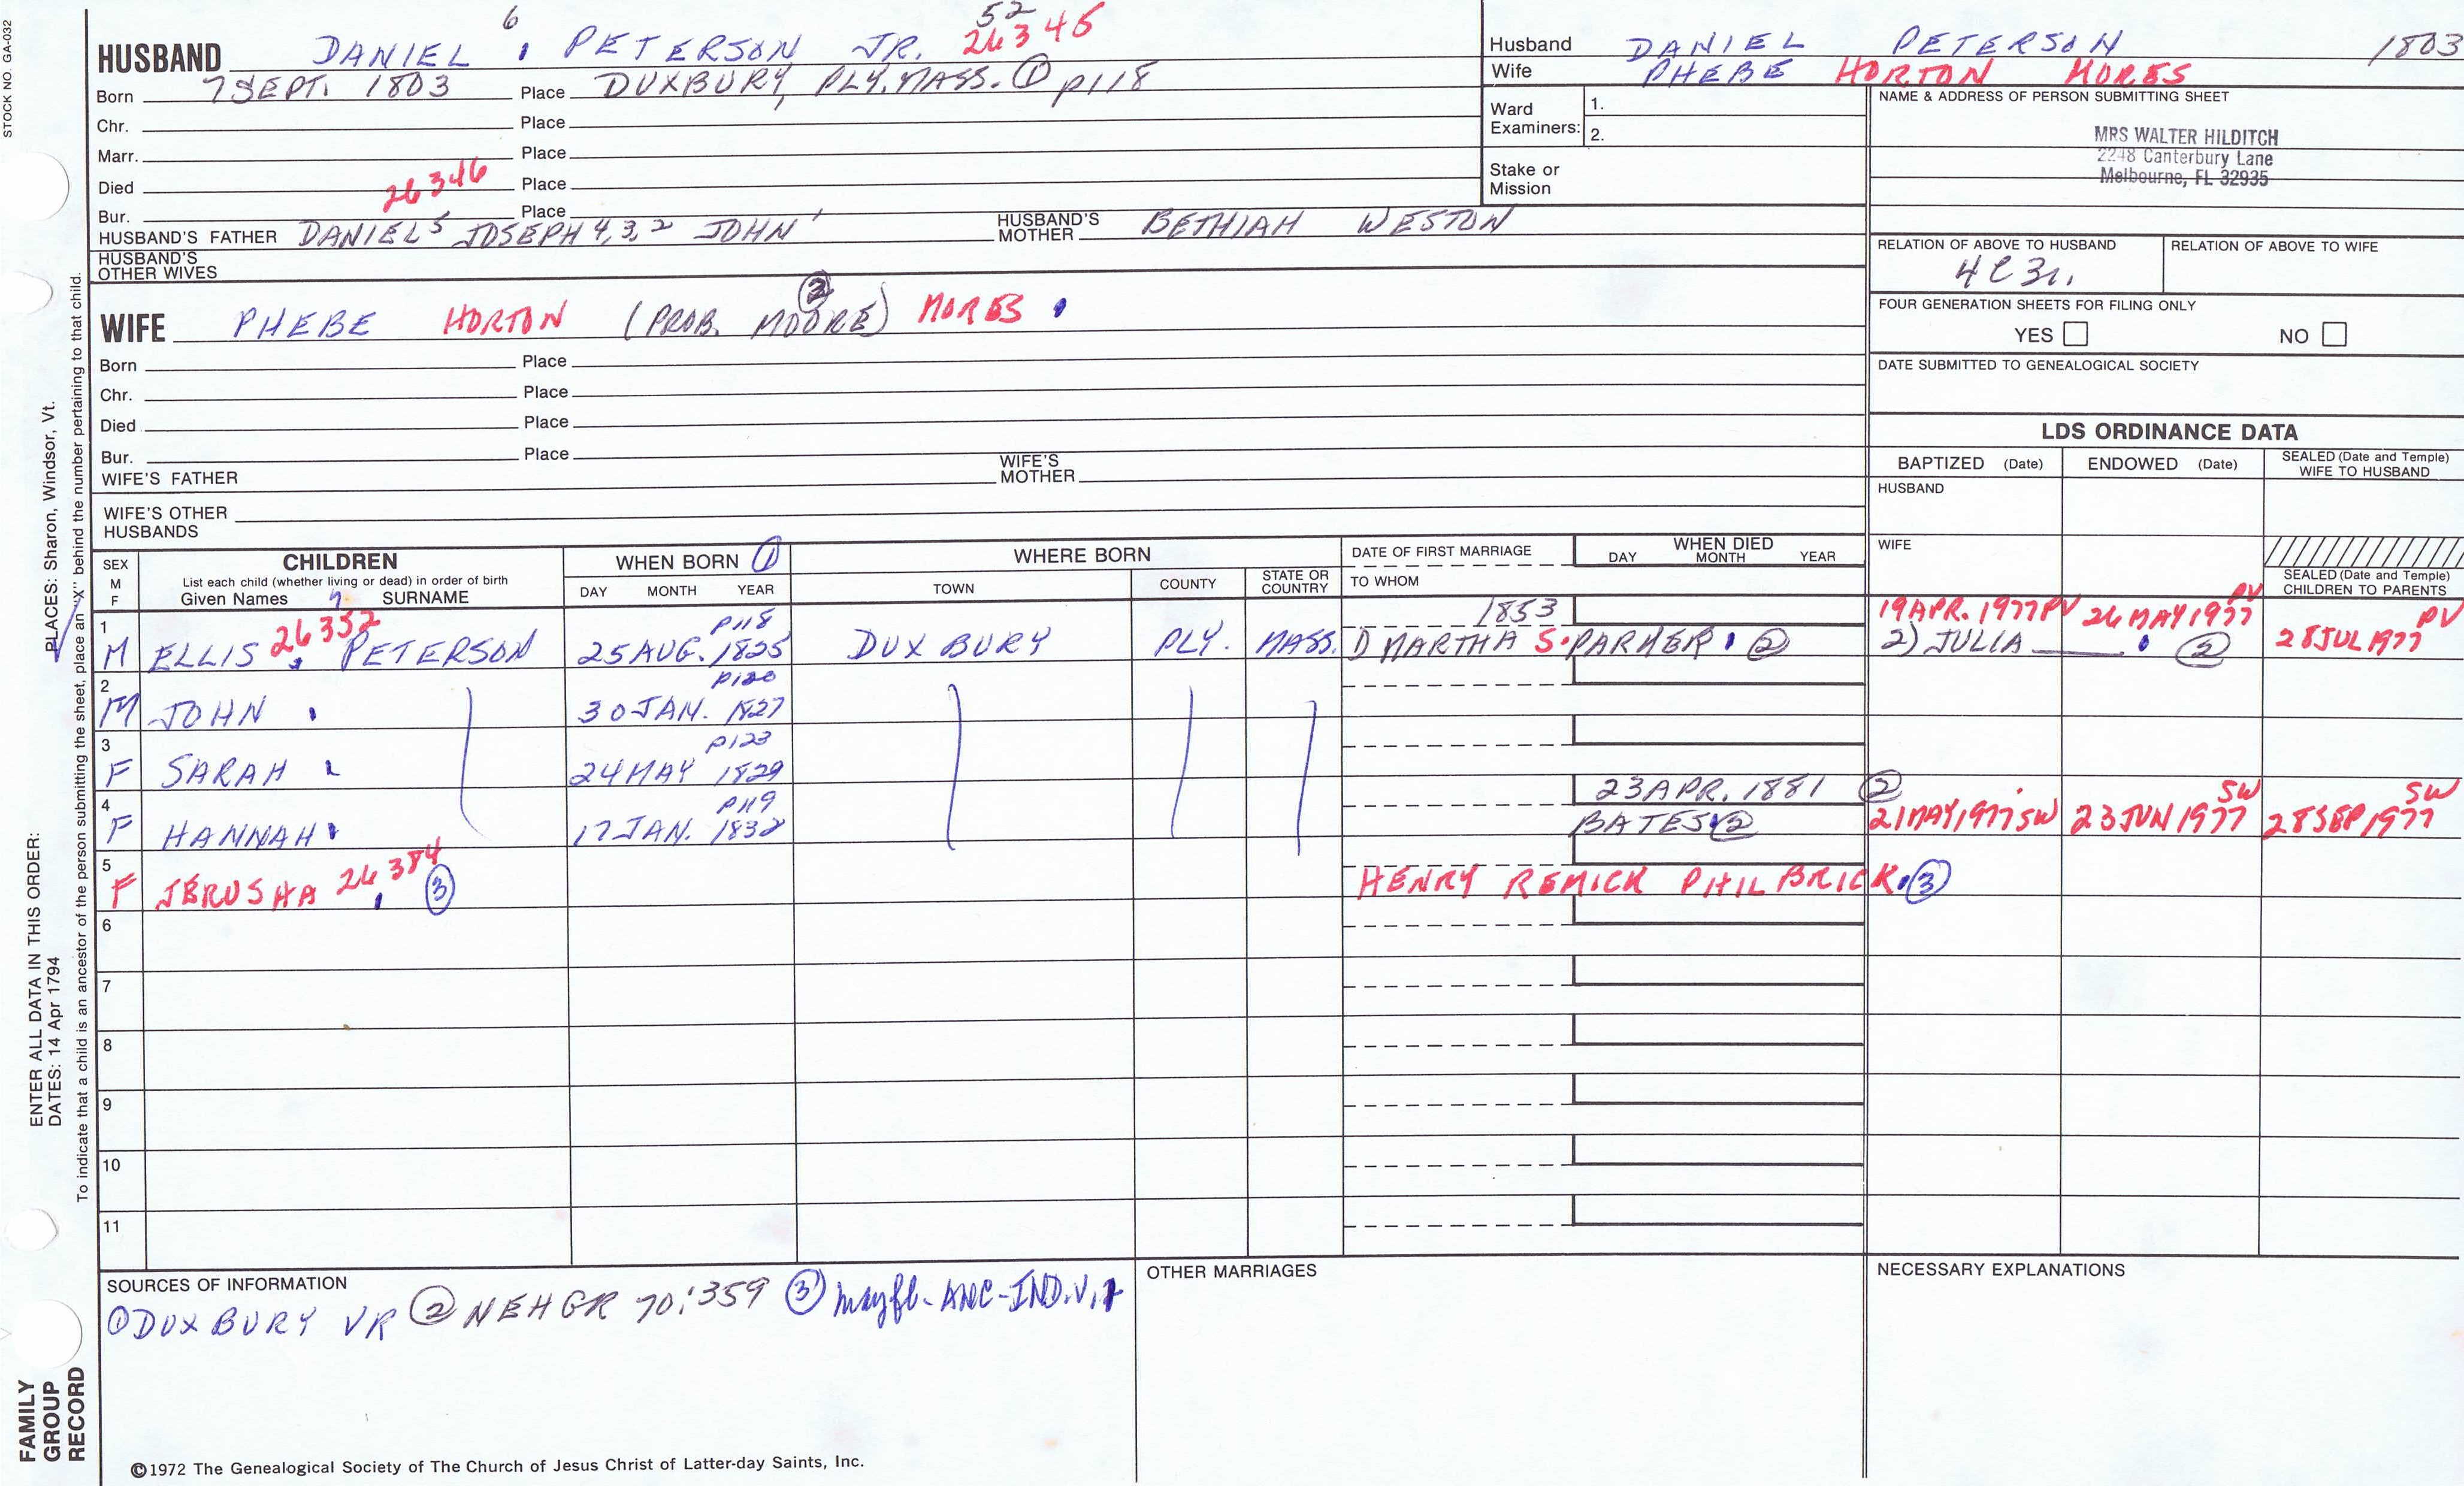 STOCK NO. GA-032
6 52
HUSBAND DANIEL , PETERSON JR. 26345
Born 7 SEPT. 1803 Place DUXBURY, PLY. MASS. ① p118
Chr. Place
Marr. Place
Died 26346 Place
Bur. Place
HUSBAND'S FATHER DANIEL 5 JOSEPH 4, 3, 2 JOHN 1 HUSBAND'S MOTHER BETHIAH WESTON
HUSBAND'S OTHER WIVES
WIFE PHEBE HORTON (PROB. MOORE) ② MORES
Born Place
Chr. Place
Died Place
Bur. Place
WIFE'S FATHER WIFE'S MOTHER
WIFE'S OTHER HUSBANDS
Husband DANIEL PETERSON 1803
Wife PHEBE HORTON MORES
Ward Examiners: 1.
2.
Stake or Mission
NAME & ADDRESS OF PERSON SUBMITTING SHEET
MRS WALTER HILDITCH
2248 Canterbury Lane
Melbourne, FL 32935
RELATION OF ABOVE TO HUSBAND RELATION OF ABOVE TO WIFE
4C3r.
FOUR GENERATION SHEETS FOR FILING ONLY
YES NO
DATE SUBMITTED TO GENEALOGICAL SOCIETY
LDS ORDINANCE DATA
BAPTIZED (Date) ENDOWED (Date) SEALED (Date and Temple) WIFE TO HUSBAND
HUSBAND
WIFE
SEALED (Date and Temple) CHILDREN TO PARENTS
SEX M F CHILDREN WHEN BORN ① WHERE BORN DATE OF FIRST MARRIAGE WHEN DIED
List each child (whether living or dead) in order of birth DAY MONTH YEAR TOWN COUNTY STATE OR COUNTRY TO WHOM DAY MONTH YEAR
Given Names 7 SURNAME
1 26352 p118 1853 19 APR. 1977 PV 26 MAY 1977 PV 28 JUL 1977 PV
M ELLIS , PETERSON 25 AUG. 1825 DUXBURY PLY. MASS. 1) MARTHA S. PARKER ② 2) JULIA ②
2 p120
M JOHN 30 JAN. 1827
3 p123
F SARAH 24 MAY 1829
4 p119 23 APR. 1881 ②
F HANNAH 17 JAN. 1832 BATES ② 21 MAY 1977 SW 23 JUN 1977 SW 28 SEP 1977 SW
5
F JERUSHA 26384 ③ HENRY REMICK PHILBRICK ③
6
7
8
9
10
11
SOURCES OF INFORMATION
① DUXBURY VR ② NEHGR 70:359 ③ mayfl- ANC-IND. V.1
OTHER MARRIAGES
NECESSARY EXPLANATIONS
©1972 The Genealogical Society of The Church of Jesus Christ of Latter-day Saints, Inc.
FAMILY GROUP RECORD
ENTER ALL DATA IN THIS ORDER:
DATES: 14 Apr 1794
PLACES: Sharon, Windsor, Vt.
To indicate that a child is an ancestor of the person submitting the sheet, place an "X" behind the number pertaining to that child.